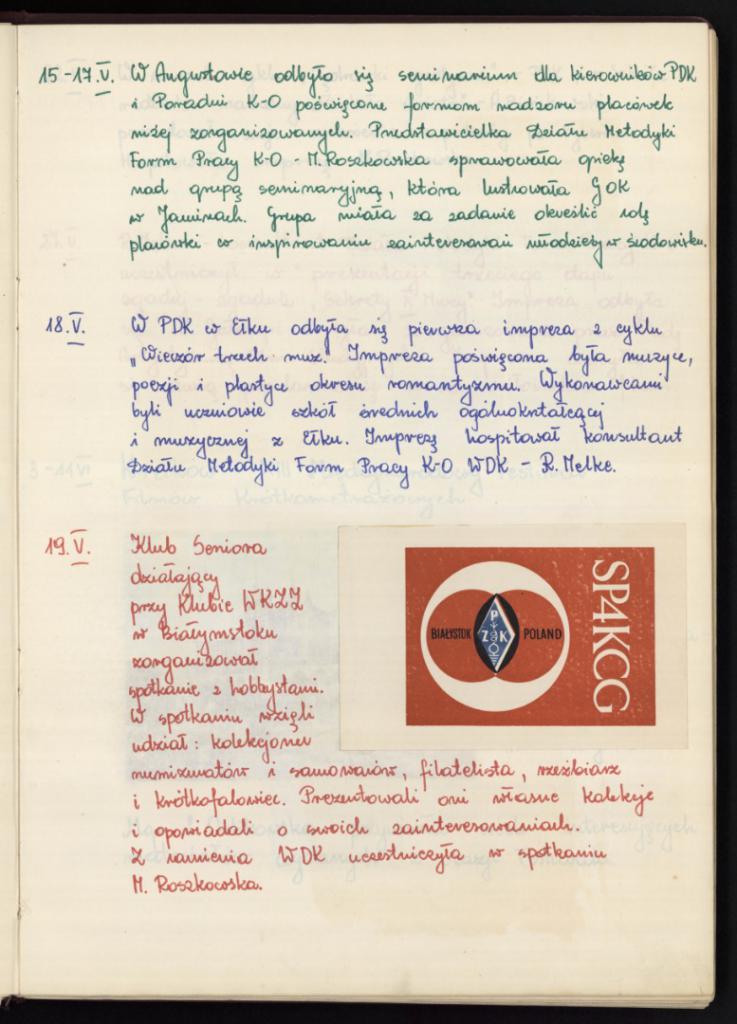 15-17.V. W Augustowie odbyło się seminarium dla kierowników PDK
i Poradni K-O poświęcone formom nadzoru placówek
niżej zorganizowanych. Przedstawicielka Działu Metodyki
Form Pracy K-O - M. Roszkowska sprawowała opiekę
nad grupą seminaryjną, która lustrowała GOK
w Jaminach. Grupa miała za zadanie określić rolę
placówki w inspirowaniu zainteresowań młodzieży w środowisku.
18.V. W PDK w Ełku odbyła się pierwsza impreza z cyklu
„Wieczór trzech muz." Impreza poświęcona była muzyce,
poezji i plastyce okresu romantyzmu. Wykonawcami
byli uczniowie szkół średnich ogólnokształcącej
i muzycznej z Ełku. Imprezę hospitował konsultant
Działu Metodyki Form Pracy K-O WDK - R. Melke.
19.V. Klub Seniora
działający
przy Klubie WKZZ
w Białymstoku
zorganizował
spotkanie z hobbystami.
W spotkaniu wzięli
udział: kolekcjoner
numizmatów i samowarów, filatelista, rzeźbiarz
i krótkofalowiec. Prezentowali oni własne kolekcje
i opowiadali o swoich zainteresowaniach.
Z ramienia WDK uczestniczyła w spotkaniu
M. Roszkowska.
BIAŁYSTOK PZK POLAND
SP4KCG